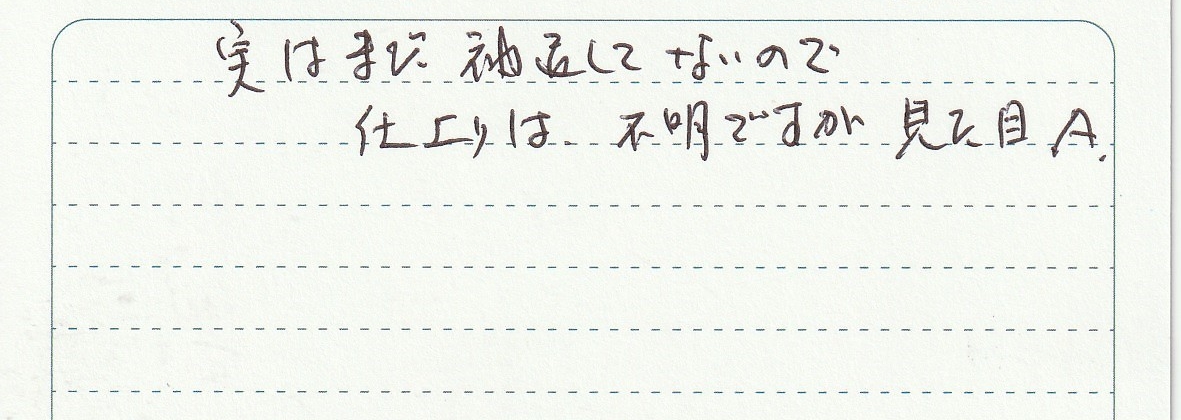 実はまだ袖通してないので
仕上りは、不明ですが 見た目 A.